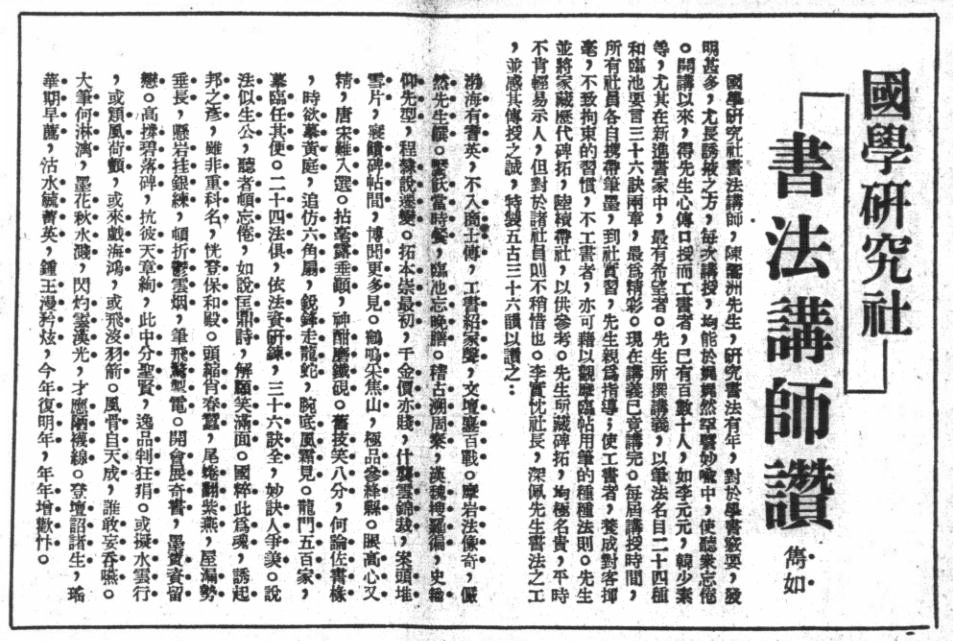 國學研究社
書法講師讚
雋如
國學研究社書法講師,陳先生,研究書法有年,對於學書竅要,發
明甚多,尤長誘掖之方,每次講授,均能於娓娓然罕譬妙喻中,使聽衆忘倦
。開講以來,得先生心傳口授而工書者,已有百數十人,如李元元,韓少素
等,尤其在新進書家中,最有希望者。先生所撰講義,以筆法名目二十四種
和臨池要言三十六訣兩章,最爲精彩。現在講義已竟講完。每屆講授時間,
所有社員各自攜帶筆墨,到社實習,先生親爲指導;使工書者,養成對客揮
毫,不致拘束的習慣,不工書者,亦可藉以觀摩臨帖用筆的種種法則。先生
並將家藏歷代碑拓,陸續帶社,以供參考。先生所藏碑拓,均極名貴,平時
不肯輕易示人,但對於諸社員則不稍惜也。李實忱社長,深佩先生書法之工
,並感其傳授之誠,特製五古三十六韻以讚之:
渤海有書英,不入商士傳,工書紹家聲,文壇襄百戰。摩岩法像奇,儼
然先生饌。饜飫當時餐,臨池忘晚膳。稽古溯周秦,漢魏搜羅徧,史籀
仰先型,程隸說遷變。拓本崇最初,千金價亦賤,什襲雲錦裁,案頭堆
雪片,寢饋碑帖間,博聞更多見。鶴鳴采焦山,極品參絳縣。眼高心又
精,唐宋難入選。拈毫露垂顯,神酣磨鐵硯。舊技笑八分,何論佐書椽
,時欲摹黃庭,追仿六角扇,銳鋒走龍蛇,腕底風霜見。龍門五百家,
摹臨任其便。二十四法俱,依法資研鍊,三十六訣全,妙訣人爭羨。說
法似生公,聽者頓忘倦,如說匡鼎詩,解頤笑滿面。國粹此爲魂,誘起
邦之彥,雖非重科名,恍登保和殿。頭縮肖春蠶,尾蜷翻紫燕,屋漏勢
垂長,懸岩挂銀練,頓折鬱雲烟,筆飛驚掣電。開會展奇書,墨寶資留
戀。高撐碧落碑,抗彼天章絢,此中分聖賢,逸品判狂狷。或擬水雲行
,或類風荷顫,或來戲海鴻,或飛沒羽箭。風骨自天成,誰敢妄吞嚥。
大筆何淋漓,墨花秋水濺,閃灼雲漢光,才應陋襪線。登壇詔諸生,瑤
華期早薦,沽水毓菁英,鍾王漫矜炫,今年復明年,年年增歡忭。